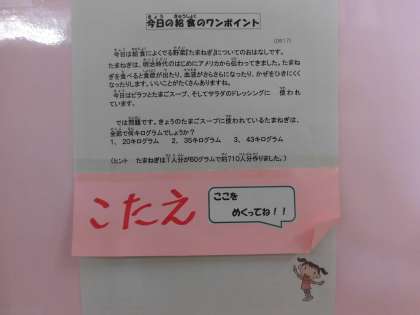 今日の給食のワンポイント
今日は給食によくでる野菜『たまねぎ』についてのおはなしです。
たまねぎは、明治時代のはじめにアメリカから伝わってきました。たまね
ぎを食べると食欲が出たり、血液がさらさらになったり、かぜをひきにくく
なったりします。いいことがたくさんありますね。
今日はピラフとたまごスープ、そしてサラダのドレッシングに 使われ
ています。
では問題です。きょうのたまごスープに使われているたまねぎは、
全部で何キログラムでしょうか？
1、20キログラム 2、35キログラム 3、43キログラム
(ヒント たまねぎは1人分が60グラムで約710人分作りました。)
こたえ
ここを
めくってね！！